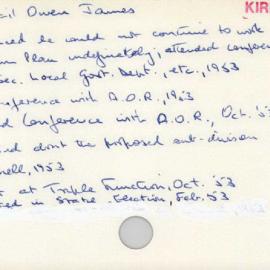 KIR
cil Owen James
ced he could not continue to work
n Plan indefinitely; attended conferen
ec. Local Govt. Dept., etc., 1953
ference with A.O.R., 1953
d Conference with A.O.R., Oct. 53
d about the proposed sub-division
nell, 1953
t at Triple Function, Oct. 53
ed in State Election, Feb. 53